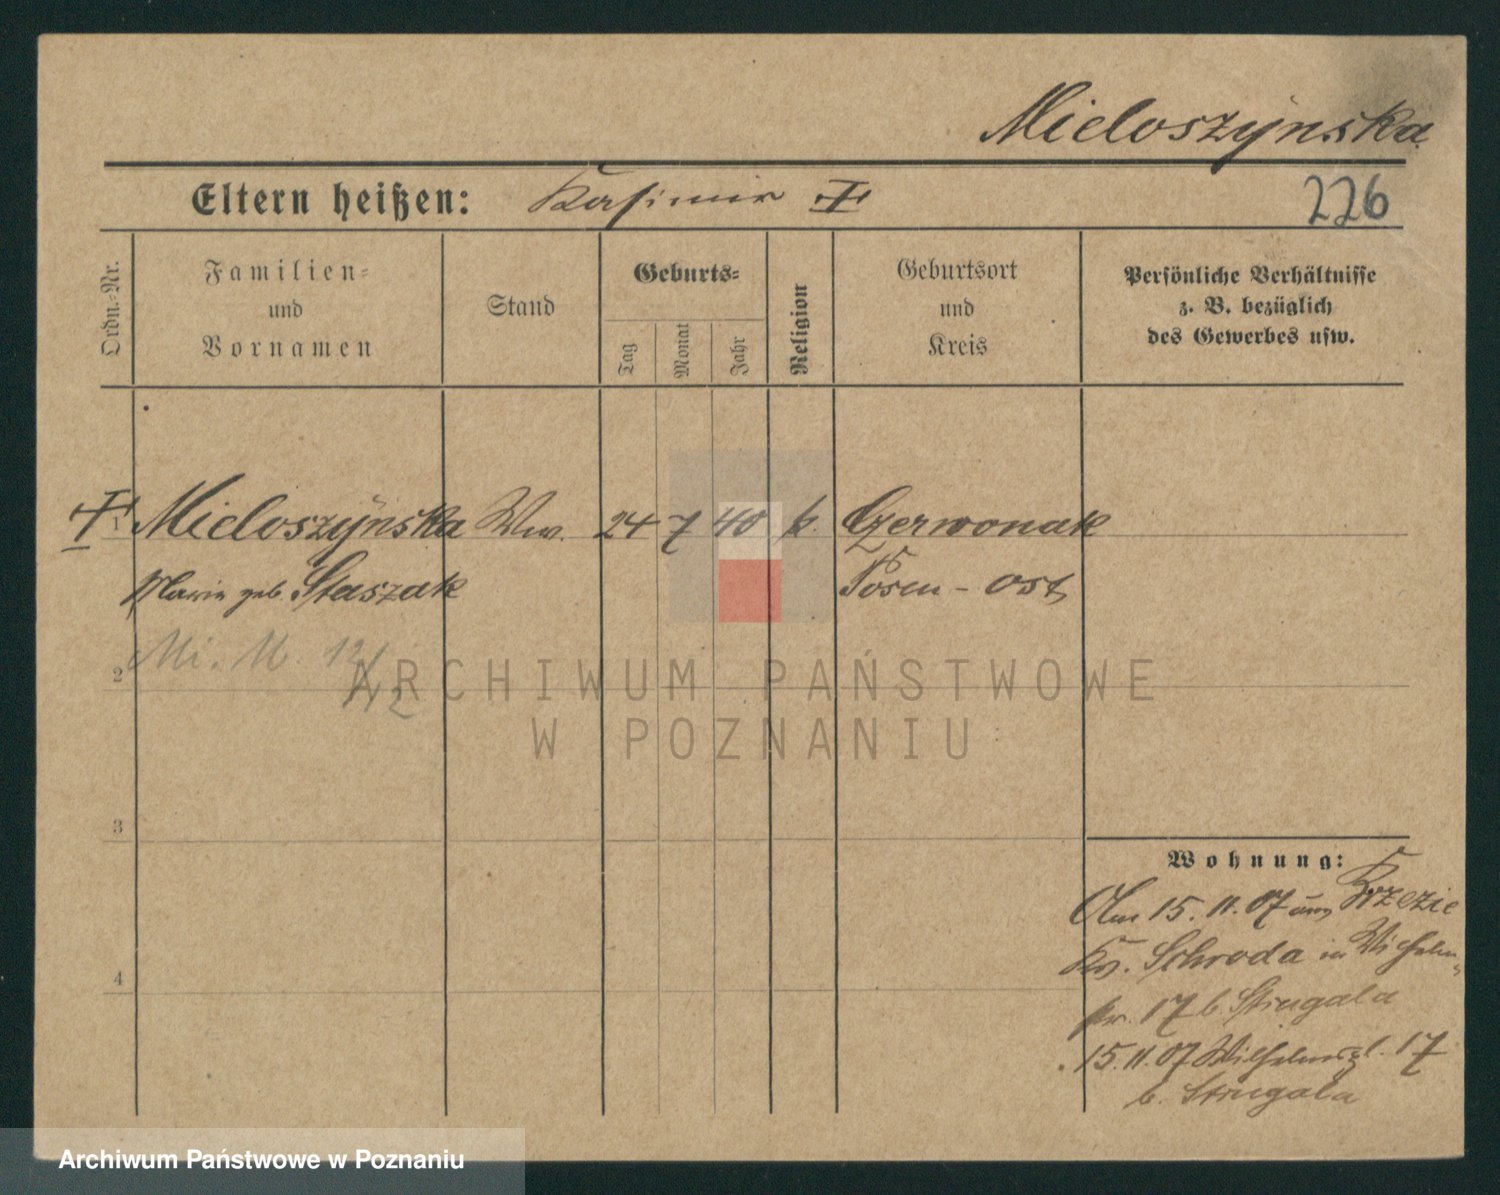 Mieloszynska
Eltern heißen: Kasimir
226
Ordn.-Nr.
Familien-
und
Vornamen
Stand
Geburts-
Tag
Monat
Jahr
Religion
Geburtsort
und
Kreis
Persönliche Verhältnisse
z. B. bezüglich
des Gewerbes usw.
1 Mieloszynska Ww. 24 7 40 k. Czerwonak
Maria geb. Staszak Posen-Ost
Mi. M. 12/
2
ARCHIWUM PAŃSTWOWE
W POZNANIU
3
4
Wohnung:
Am 15.11.07 aus Krzezie
Kr. Schroda in Wilhelm-
str. 17 b. Strugala
15.11.07 Wilhelmpl. 17
b. Strugala
Archiwum Państwowe w Poznaniu